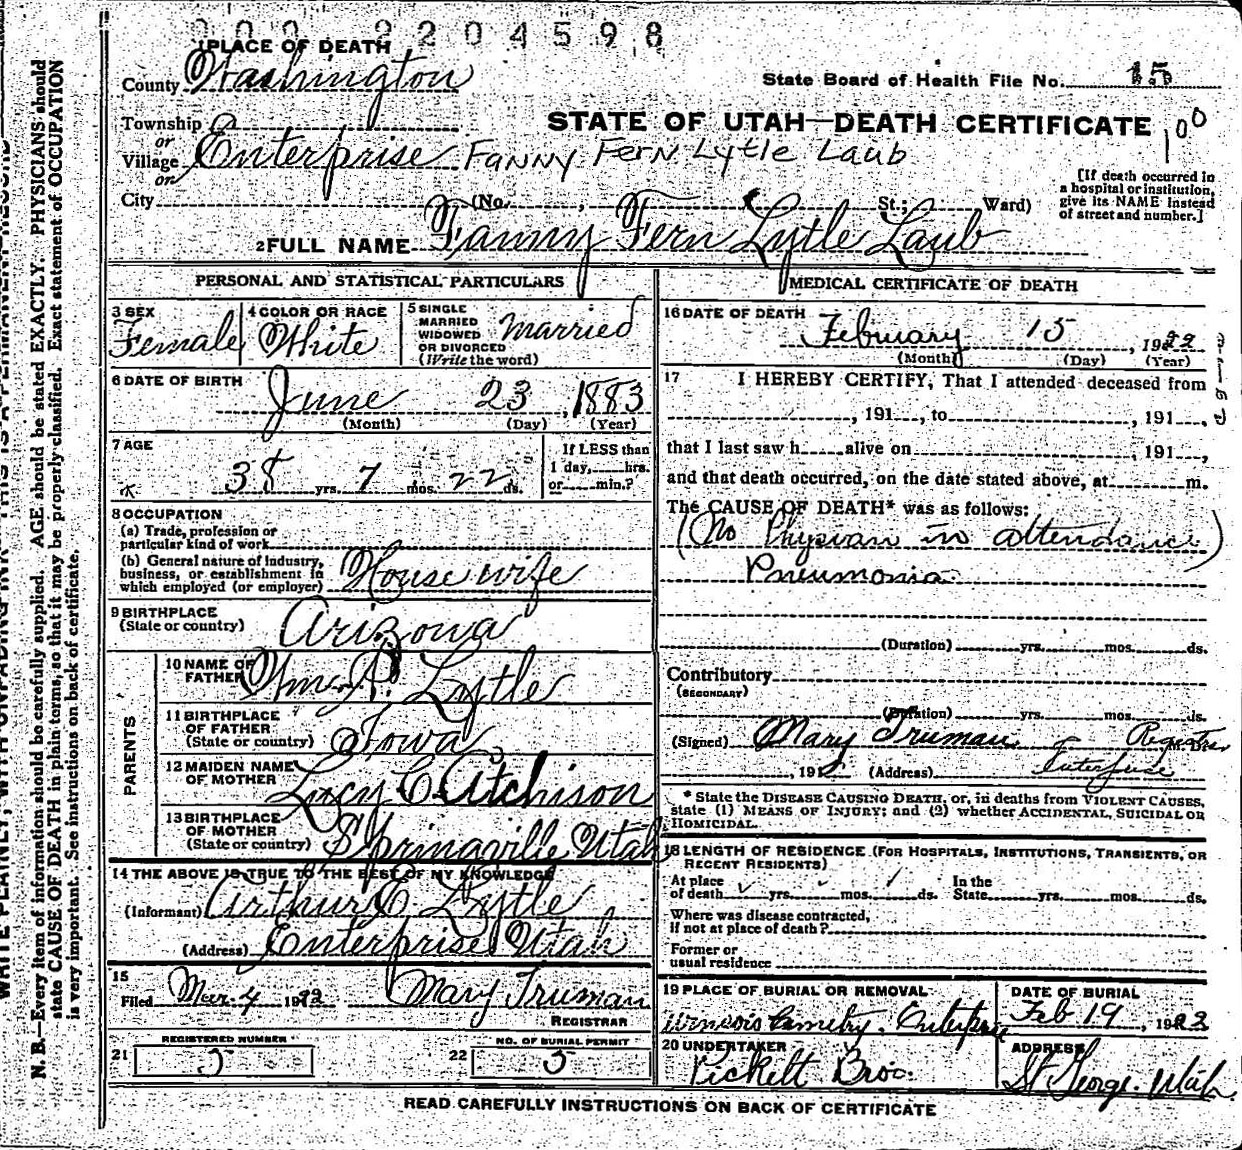 0 0 0 2 2 0 4 5 9 8
1 PLACE OF DEATH
County Washington
State Board of Health File No. 15
STATE OF UTAH—DEATH CERTIFICATE
100
Township
or
Village Enterprise Fanny Fern Lytle Laub
or
[If death occurred in a hospital or institution, give its NAME instead of street and number.]
City (No. , St.; Ward)
2 FULL NAME Fanny Fern Lytle Laub
PERSONAL AND STATISTICAL PARTICULARS
3 SEX
Female
4 COLOR OR RACE
White
5 SINGLE
MARRIED
WIDOWED
OR DIVORCED
(Write the word)
Married
6 DATE OF BIRTH
June 23, 1883
(Month) (Day) (Year)
7 AGE
38 yrs. 7 mos. 22 ds.
If LESS than
1 day, hrs.
or min.?
8 OCCUPATION
(a) Trade, profession or
particular kind of work
(b) General nature of industry,
business, or establishment in
which employed (or employer)
House wife
9 BIRTHPLACE
(State or country)
Arizona
PARENTS
10 NAME OF
FATHER
Wm. Lytle
11 BIRTHPLACE
OF FATHER
(State or country)
Iowa
12 MAIDEN NAME
OF MOTHER
Lucy C Atchison
13 BIRTHPLACE
OF MOTHER
(State or country)
Springville Utah
14 THE ABOVE IS TRUE TO THE BEST OF MY KNOWLEDGE
(Informant) Arthur E Lytle
(Address) Enterprise Utah
15
Filed Mar. 4 1922 Mary Truman
REGISTRAR
21 REGISTERED NUMBER
5
22 NO. OF BURIAL PERMIT
5
MEDICAL CERTIFICATE OF DEATH
16 DATE OF DEATH
February 15, 1922
(Month) (Day) (Year)
17 I HEREBY CERTIFY, That I attended deceased from
, 191 , to , 191 ,
that I last saw h alive on , 191 ,
and that death occurred, on the date stated above, at m.
The CAUSE OF DEATH* was as follows:
(No Physian in attendance)
Pneumonia
(Duration) yrs. mos. ds.
Contributory
(SECONDARY)
(Duration) yrs. mos. ds.
(Signed) Mary Truman
, 191 (Address) Enterprise
* State the DISEASE CAUSING DEATH, or, in deaths from VIOLENT CAUSES,
state (1) MEANS OF INJURY; and (2) whether ACCIDENTAL, SUICIDAL OR
HOMICIDAL.
18 LENGTH OF RESIDENCE (FOR HOSPITALS, INSTITUTIONS, TRANSIENTS, OR
RECENT RESIDENTS)
At place
of death yrs. mos. ds.
In the
State yrs. mos. ds.
Where was disease contracted,
if not at place of death?
Former or
usual residence
19 PLACE OF BURIAL OR REMOVAL
Cemetry. Enterprise
DATE OF BURIAL
Feb 19, 1922
20 UNDERTAKER
Pickett Bros.
ADDRESS
St George. Utah
READ CAREFULLY INSTRUCTIONS ON BACK OF CERTIFICATE
N. B.—Every item of information should be carefully supplied. AGE should be stated EXACTLY. PHYSICIANS should
state CAUSE OF DEATH in plain terms, so that it may be properly classified. Exact statement of OCCUPATION
is very important. See instructions on back of certificate.